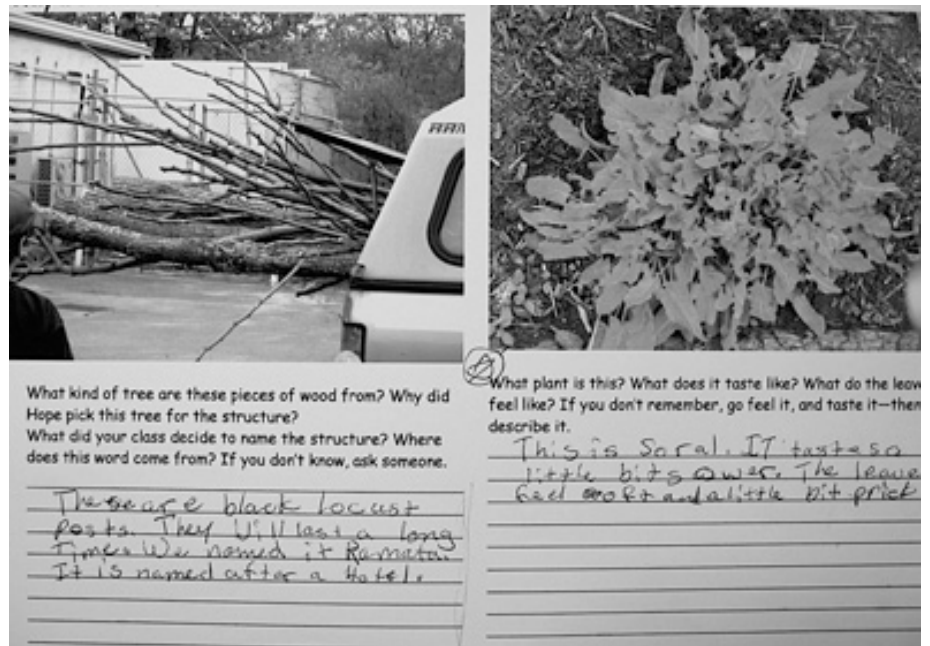 What kind of tree are these pieces of wood from? Why did
Hope pick this tree for the structure?
What did your class decide to name the structure? Where
does this word come from? If you don't know, ask someone.
These are black locust
Posts. They Will last a long
Time. We nomed it Ramata.
It is named after a Hotel.
What plant is this? What does it taste like? What do the leave
feel like? If you don't remember, go feel it, and taste it—then
describe it.
This is Soral. IT tastes a
little bit sower. The leave
feel soft and a little bit prick